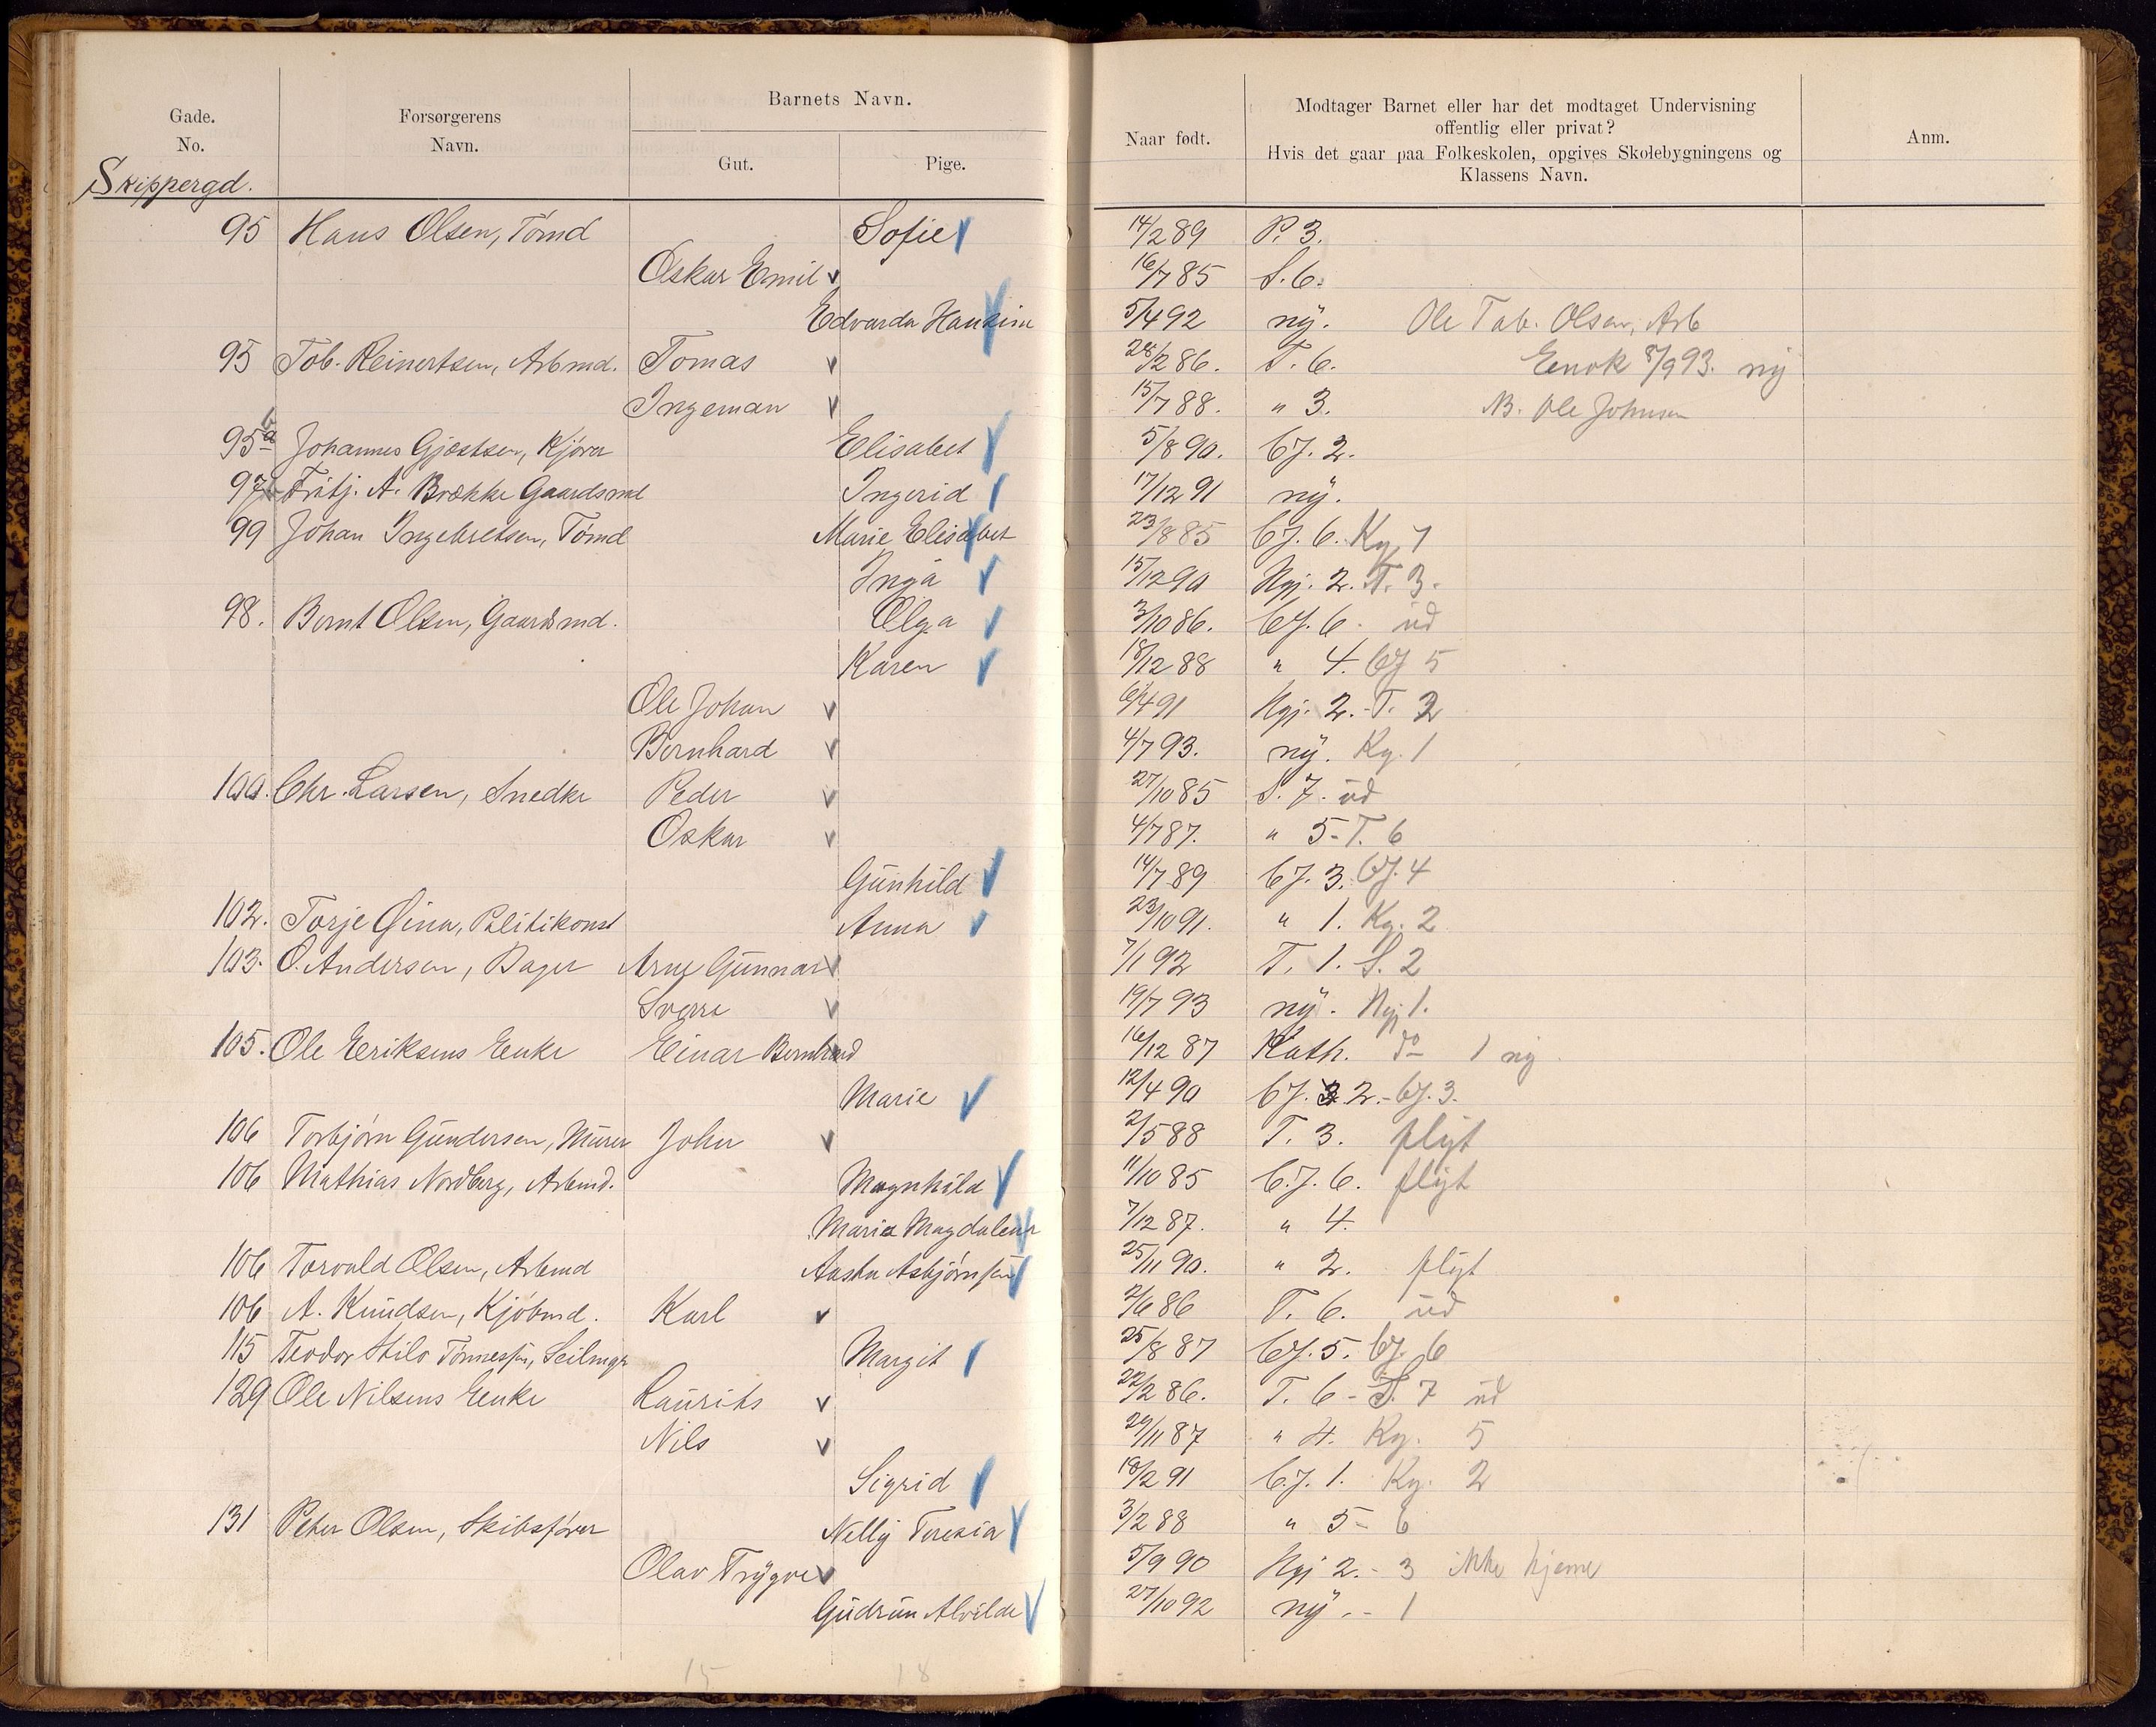 Gade. No. Forsørgerens Navn. Barnets Navn. Gut. Pige. Naar født. Modtager Barnet eller har det modtaget Undervisning offentlig eller privat? Hvis det gaar paa Folkeskolen, opgives Skolebygningens og Klassens Navn. Anm.
Skippergd.
95 Hans Olsen, Tømd Sofie 14/2 89 P. 3.
Oskar Emil 16/7 85 S. 6.
Edvarda Hansine 5/4 92 ny. Ole Tob. Olsen, Arb
95 Tob. Reinertsen, Arbmd. Tomas 28/2 86. T. 6. Enok 8/9 93. ny
Ingeman 15/7 88. " 3. Ole Johnsen
95a Johannes Gjæstsen, Kjører Elisabet 5/8 90. CJ. 2.
97 Fritj. A. Brække Gaardsmd Ingerid 17/12 91 ny.
99 Johan Ingebretsen, Tømd Marie Elisabet 23/8 85 CJ. 6. Kg 7
Inga 15/12 90 Ngj. 2. T. 3.
98. Bernt Olsen, Gaardsmd. Olga 3/10 86. CJ. 6. ud
Karen 18/12 88 " 4. CJ 5
Ole Johan 6/4 91 Ngj. 2. - T. 3
Bernhard 4/7 93. ny. Kg. 1
100. Chr. Larsen, Snedker Peder 27/10 85 S. 7. ud
Oskar 4/7 87. " 5 - T. 6
Gunhild 14/7 89 CJ. 3. CJ. 4
102. Torje Gina, Politikonst Anna 23/10 91. " 1. Kg. 2
103. O. Andersen, Bager Arne Gunnar 7/1 92 T. 1. S. 2
Sverre 19/7 93 ny. Ngj 1.
105. Ole Eriksens Enke Einar Bernhard 16/12 87 Kath. do 1 ny
Marie 12/4 90 CJ. 2. - CJ. 3.
106 Torbjørn Gundersen, Murer John 2/5 88 T. 3. flyt
106 Mathias Nordberg, Arbmd. Magnhild 11/10 85 C.J. 6. flyt
Marie Magdalene 7/12 87. " 4.
106 Torvald Olsen, Arbmd Aasta Asbjørnsen 25/11 90. " 2. flyt
106 A. Knudsen, Kjøbmd. Karl 2/6 86 T. 6. ud
115 Teodor Stilo Tønnessen, Seilmgr Margit 25/8 87 CJ. 5. CJ. 6
129 Ole Nilsens Enke Laurits 22/2 86. T. 6 - S. 7 ud
Nils 29/11 87 " 4. Kg. 5
Sigrid 18/2 91 C.J. 1. Kg. 2
131 Peter Olsen, Skibsfører Nelly Teresia 3/2 88 " 5 - 6
Olav Trygve 5/9 90 Ngj 2. - 3 ikke hjeme
Gudrun Alvilde 27/10 92 ny. - 1
15 18